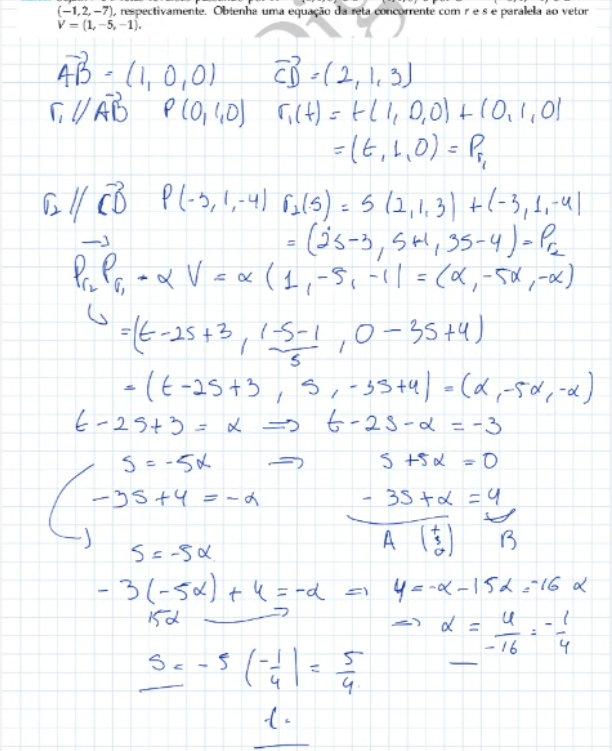 (−1, 2, −7), respectivamente. Obtenha uma equação da reta concorrente com r e s e paralela ao vetor
V = (1, −5, −1).
AB = (1, 0, 0) CD = (2, 1, 3)
r₁ // AB P(0,1,0) r₁(t) = t(1, 0, 0) + (0, 1, 0)
= (t, 1, 0) = Pr₁
r₂ // CD P(-3, 1, -4) r₂(s) = s(2, 1, 3) + (-3, 1, -4)
= (2s-3, s+1, 3s-4) = Pr₂
Pr₂ Pr₁ = α V = α (1, -5, -1) = (α, -5α, -α)
= (t-2s+3, 1-s-1, 0-3s+4)
s
= (t-2s+3, s, -3s+4) = (α, -5α, -α)
t-2s+3 = α ⇒ t-2s-α = -3
s = -5α ⇒ s+5α = 0
-3s+4 = -α -3s+α = 4
A (t s α) B
s = -5α
-3(-5α) + 4 = -α ⇒ 4 = -α - 15α = -16α
15α ⇒ α = 4/-16 = -1/4
s = -5 (-1/4) = 5/4.
t =